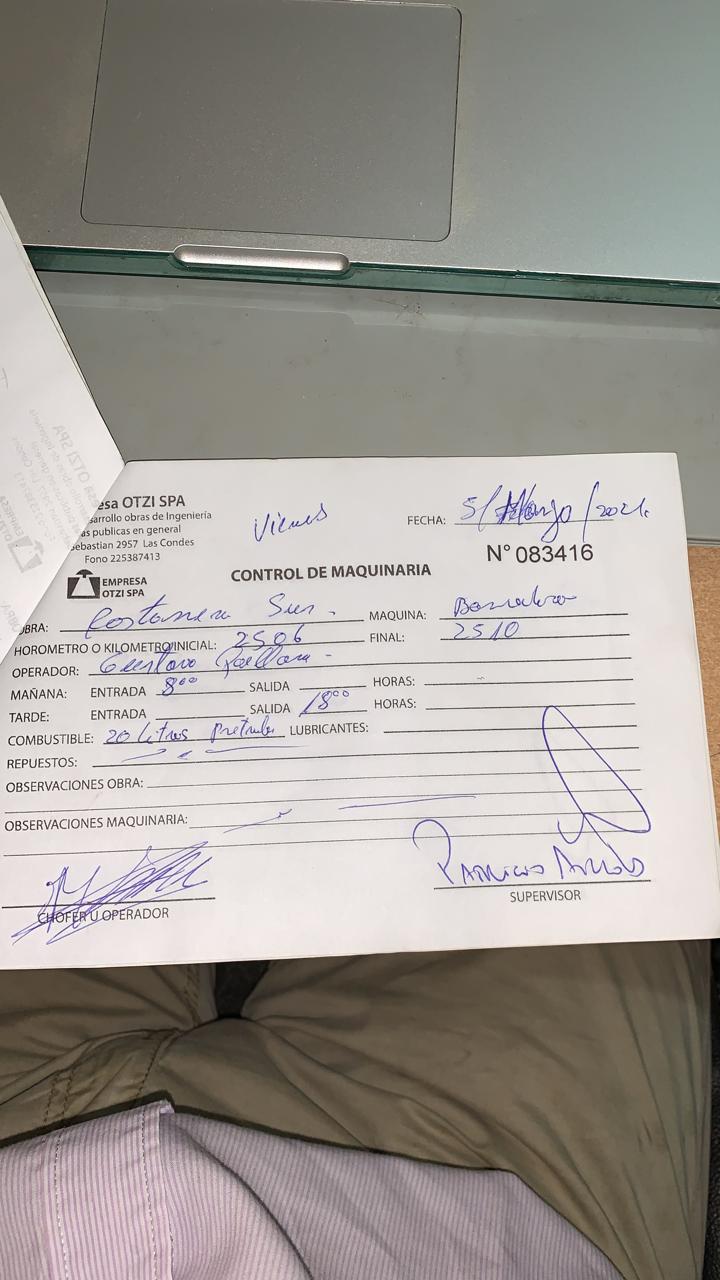 esa OTZI SPA
sarrollo obras de Ingeniería
as publicas en general
Sebastian 2957 Las Condes
Fono 225387413
EMPRESA
OTZI SPA
Viernes
FECHA: 5/Marzo/2021.
N° 083416
CONTROL DE MAQUINARIA
OBRA: Costanera Sur. MAQUINA:
HOROMETRO O KILOMETRO/INICIAL: 2506 FINAL: 2510
OPERADOR: Gustavo
MAÑANA: ENTRADA 8:00 SALIDA HORAS:
TARDE: ENTRADA SALIDA 18:00 HORAS:
COMBUSTIBLE: 20 Litros Petroleo LUBRICANTES:
REPUESTOS:
OBSERVACIONES OBRA:
OBSERVACIONES MAQUINARIA:
CHOFER U OPERADOR
Patricio
SUPERVISOR